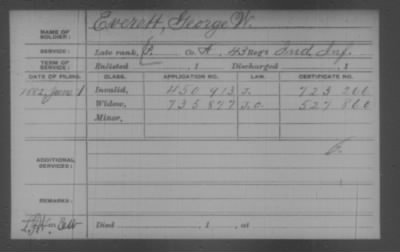 NAME OF SOLDIER: Everett, George W.
SERVICE: Late rank, P. Co. A, 43 Reg't Ind. Inf.
TERM OF SERVICE: Enlisted , 1 Discharged , 1
DATE OF FILING. CLASS. APPLICATION NO. LAW. CERTIFICATE NO.
1882, June 1 Invalid, 450 913 723 260
Widow, 735 877 527 860
Minor,
ADDITIONAL SERVICES:
REMARKS:
Died , 1 , at